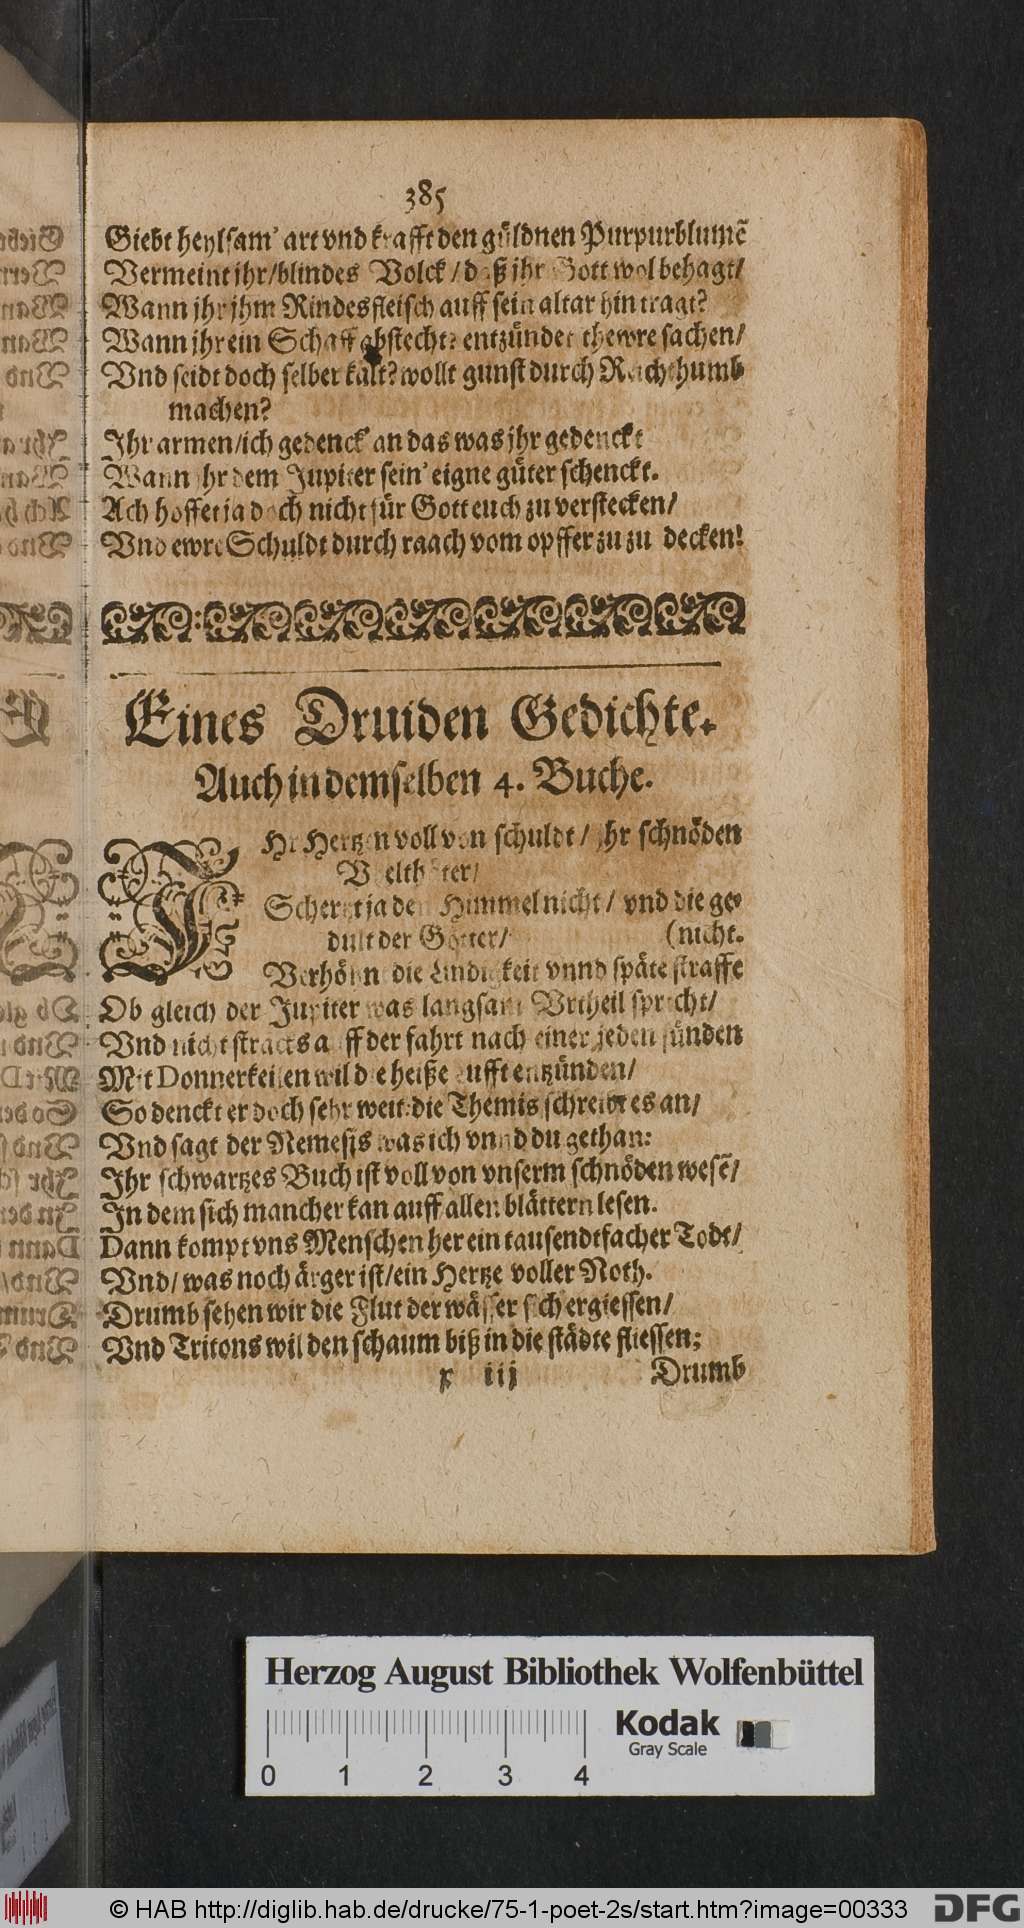 385
Giebt heylsam' art vnd krafft den güldnen Purpurblumē
Vermeint jhr/blindes Volck / daß jhr Gott wol behagt/
Wann jhr jhm Rindesfleisch auff sein altar hin tragt?
Wann jhr ein Schaff abstecht? entzündet thewre sachen/
Vnd seidt doch selber kalt? wollt gunst durch Reichthumb
machen?
Ihr armen/ich gedenck' an das was jhr gedenckt
Wann jhr dem Jupiter sein' eigne güter schenckt.
Ach hoffet ja doch nicht für Gott euch zu verstecken/
Vnd ewre Schuldt durch raach vom opffer zu zu decken!
Eines Druiden Gedichte.
Auch in demselben 4. Buche.
IHr Hertzen voll von schuldt / jhr schnöden
Weltgötter/
Schertzt ja den Himmel nicht / vnd die ge-
dult der Götter/ (nicht.
Verhöhnt die Lindigkeit vnnd späte straffe
Ob gleich der Jupiter was langsam Vrtheil spricht/
Vnd nicht stracks auff der fahrt nach einer jeden sünden
Mit Donnerkeilen wil die heiße Lufft entzünden/
So denckt er doch sehr weit: die Themis schreibt es an/
Vnd sagt der Nemesis was ich vnnd du gethan:
Ihr schwartzes Buch ist voll von vnserm schnöden wesē/
In dem sich mancher kan auff allen blättern lesen.
Dann kompt vns Menschen her ein tausendtfacher Todt/
Vnd/ was noch ärger ist/ein Hertze voller Noth.
Drumb sehen wir die Flut der wässer sich ergiessen/
Vnd Tritons wilden schaum biß in die städte fliessen;
x iij Drumb
Herzog August Bibliothek Wolfenbüttel
Kodak
Gray Scale
0 1 2 3 4
© HAB http://diglib.hab.de/drucke/75-1-poet-2s/start.htm?image=00333
DFG